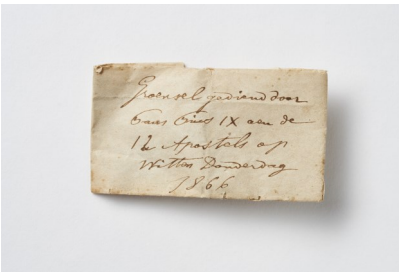 Groensel gediend door
Paus Pius IX aen de
12 Apostels op
Witten Donderdag
1866